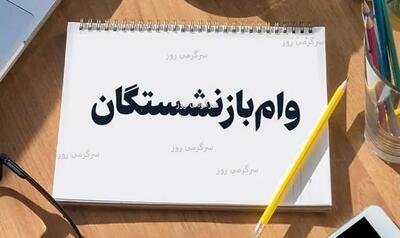 سرگرمی روز
سرگرمی روز
وام‌بازنشستگان
سرگرمی روز
سرگرمی روز
سرگرمی روز
سرگرمی روز